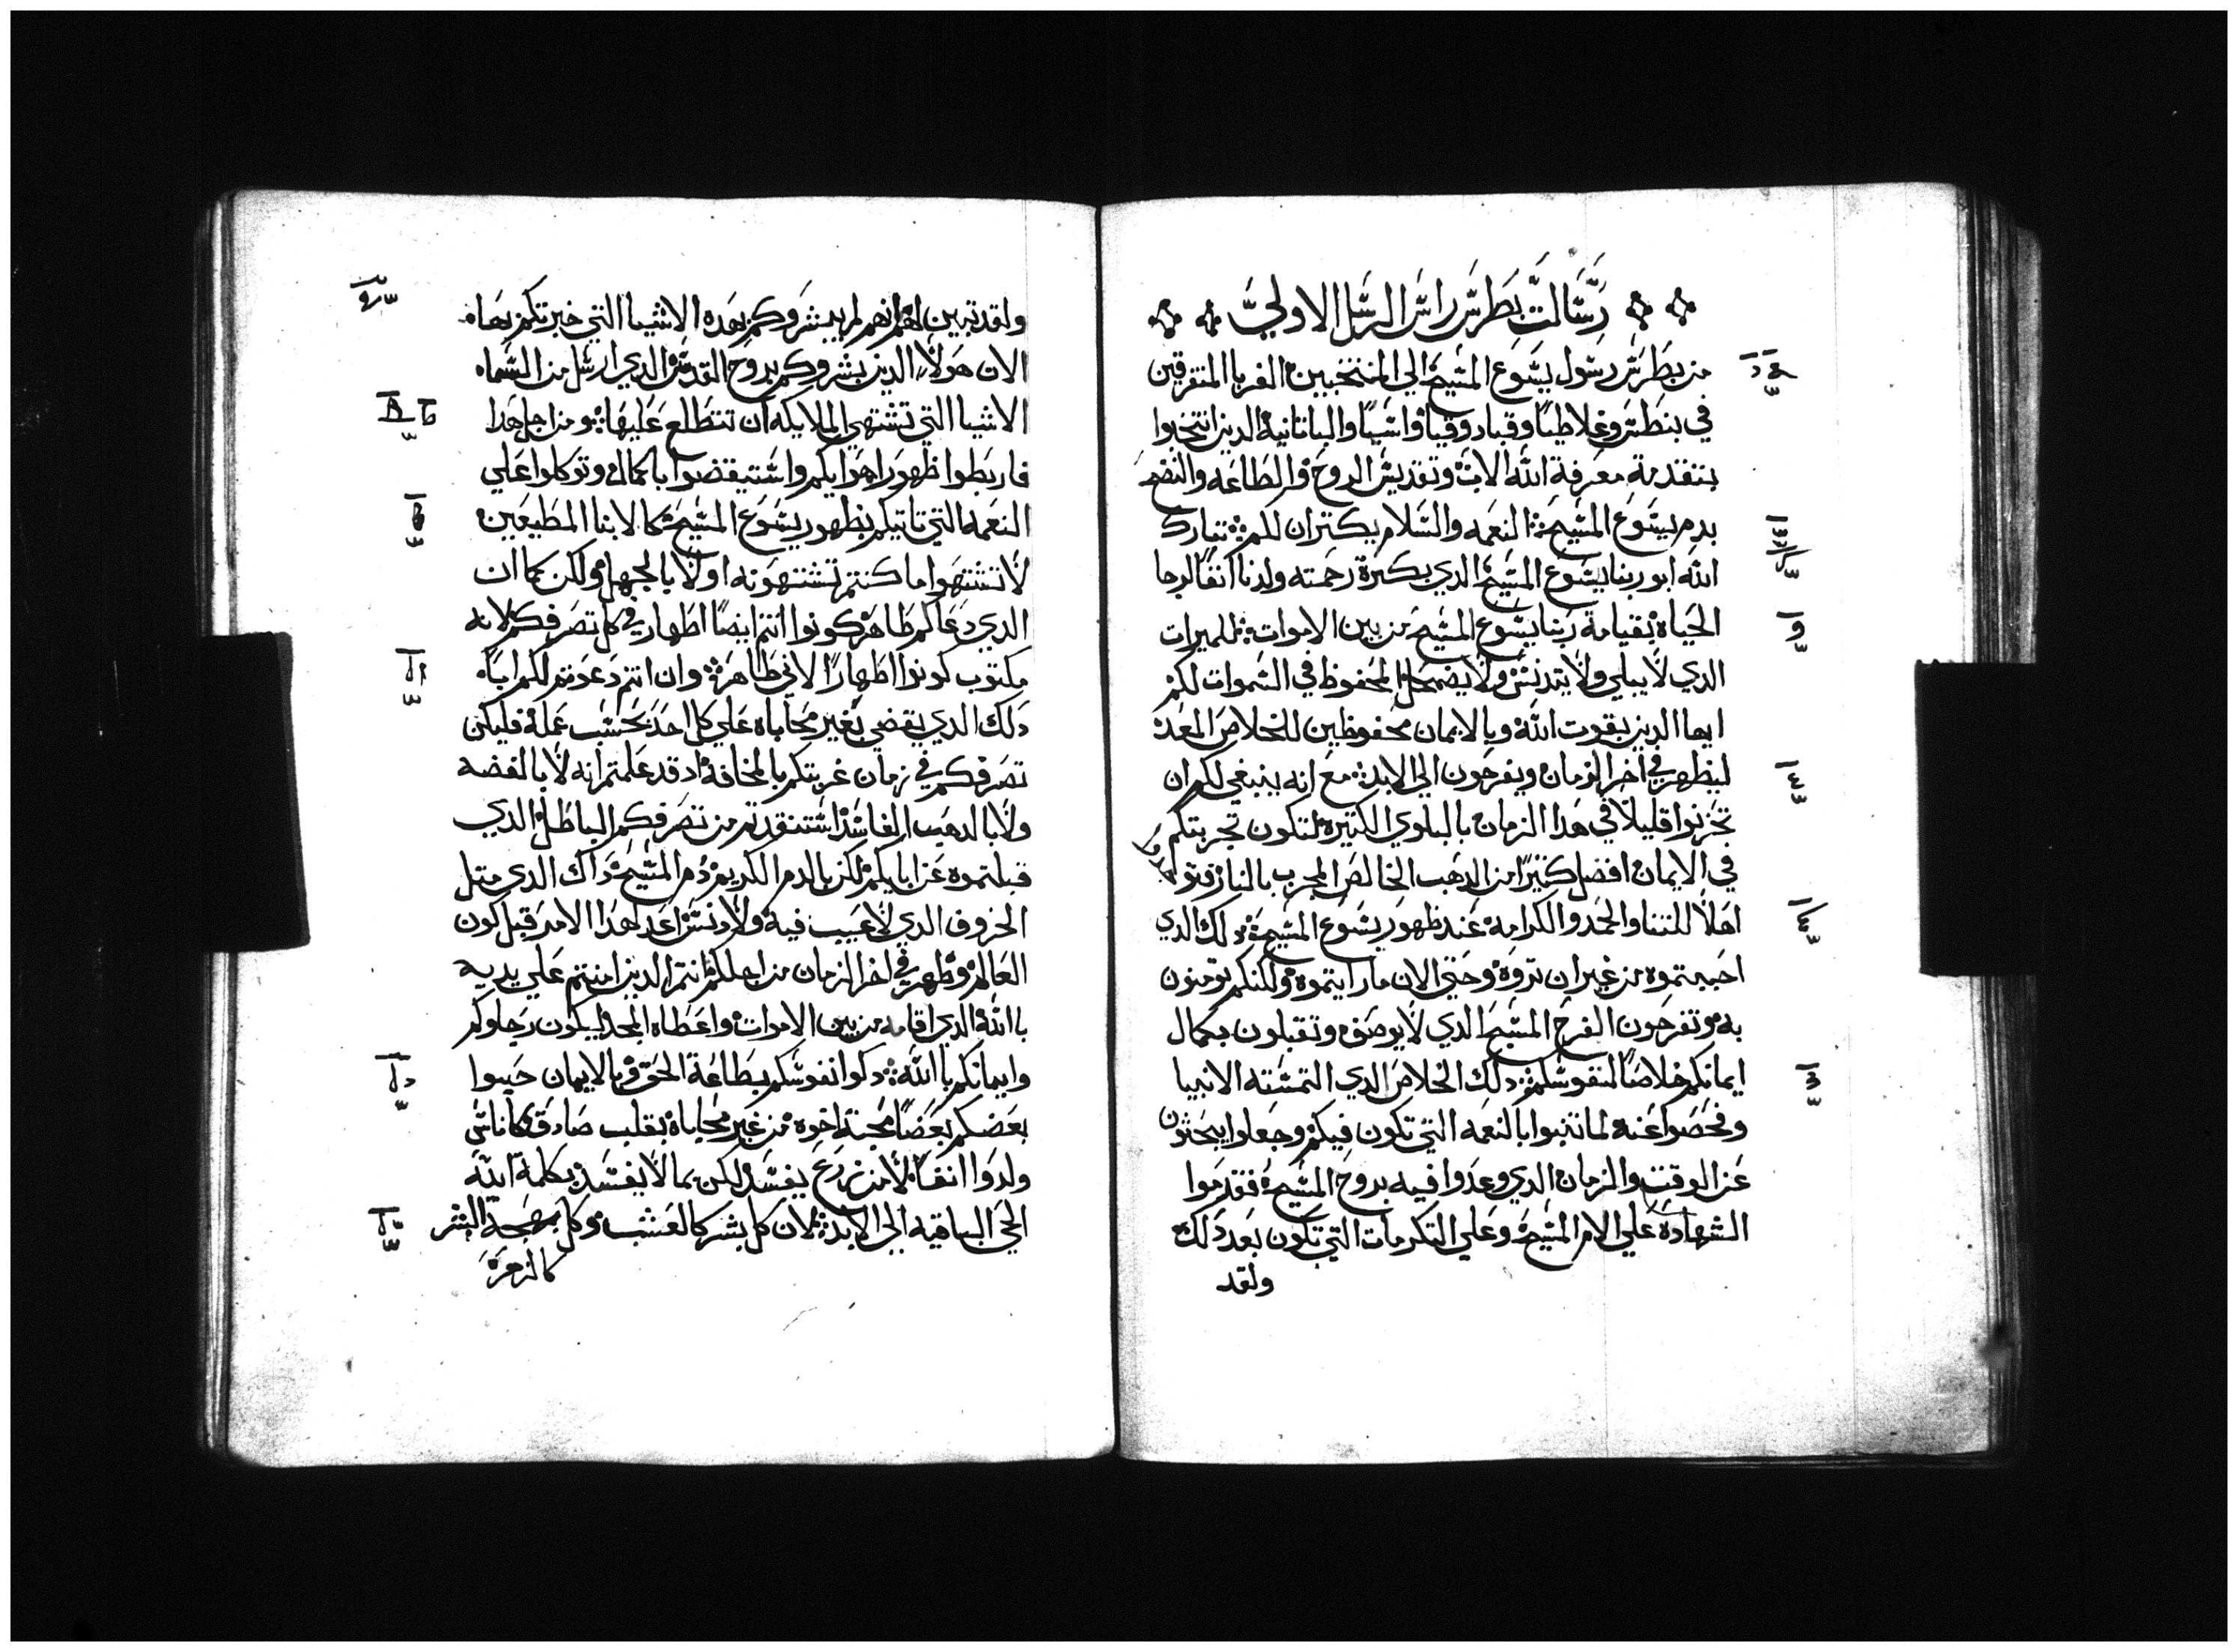 رسالت بطرس راس الرسل الاولي
من بطرس رسول يسوع المسيح الي المنتخبين الغربا المتفرقين
في بنطس وغلاطيا وقبادوقيا واسيا والباتانية الدين انتخبوا
بتقدمة معرفة الله الاب وتقديس الروح والطاعه والنضح
بدم يسوع المسيح النعمه والسلام يكتران لكم تبارك
الله ابو ربنا يسوع المسيح الدي بكترة رحمته ولدنا انفا لرجا
الحياه بقيامة ربنا يسوع المسيح من بين الاموات للميرات
الدي لا يبلي ولا يتدنس ولا يضمحل المحفوظ في السموات لكم
ايها الدين بقوت الله وبالايمان محفوظين للخلاص المعد
ليظهر في اخر الزمان ويفرحون الي الابد مع انه ينبغي لكم ان
تحزنوا قليلا في هدا الزمان بالبلوي الكتيرة لتكون تجربتكم
في الايمان افضل كتيرا من الدهب الخالص المجرب بالنار
اهلا للتنا والحمد والكرامه عند ظهور يسوع المسيح دلك الدي
احببتموه من غير ان تروه وحتي الان ما رايتموه ولكنكم تومنون
به وتفرحون الفرح المسيح الدي لا يوصف وتقبلون بكمال
ايمانكم خلاصا لنفوسكم دلك الخلاص الدي التمسته الانبيا
وفحصوا عنه لما تنبوا بالنعمه التي تكون فيكم وجعلوا يبحتون
عن الوقت والزمان الدي وعدوا فيه بروح المسيح فتقدموا
الشهادة علي الام المسيح وعلي التكرمات التي تكون بعد دلك
ولقد
ولقد تبين لهم انهم لم يبشروكم بهده الاشيا التي خبرتكم بها
الان هولا الدين بشروكم بروح القدس الدي ارسل من السماء
الاشيا التي تشتهي الملايكه ان تتطلع عليها ومن اجل هدا
فاربطوا ظهور اهوايكم واستيقضوا بالكمال وتوكلوا علي
النعمه التي تاتيكم بظهور يسوع المسيح كالابنا المطيعين
لا تشتهوا ما كنتم تشتهونه اولا بالجهل ولكن كما ان
الدي دعاكم طاهر كونوا انتم ايضا اطهار في كل تصرفكم لانه
مكتوب كونوا اطهارا لاني طاهر وان انتم دعوتم لكم ابا
دلك الدي يقضي بغير محاباه علي كل احد بحسب عمله فليكن
تصرفكم في زمان غربتكم بالمخافة اد قد علمتم انه لا بالفضه
ولا بالدهب الفاسد استنقدتم من تصرفكم الباطل الدي
قبلتموه عن ابايكم لكن بالدم الكريم دم المسيح داك الدي متل
الخروف الدي لا عيب فيه ولا دنس اعد لهدا الامر قبل كون
العالم وظهر في اخر الزمان من اجلكم انتم الدين امنتم علي يديه
بالله الدي اقامه من بين الاموات واعطاه المجد ليكون رجاوكم
وايمانكم بالله دكوا نفوسكم بطاعة الحق وبالايمان حبوا
بعضكم بعضا محبة اخوه من غير محاباه بقلب صادق كاناس
ولدوا انفا لا من زرع يفسد لكن بما لا يفسد بكلمة الله
الحي الباقيه الي الابد لان كل بشر كالعشب وكل بهجة البشر
كالزهرة